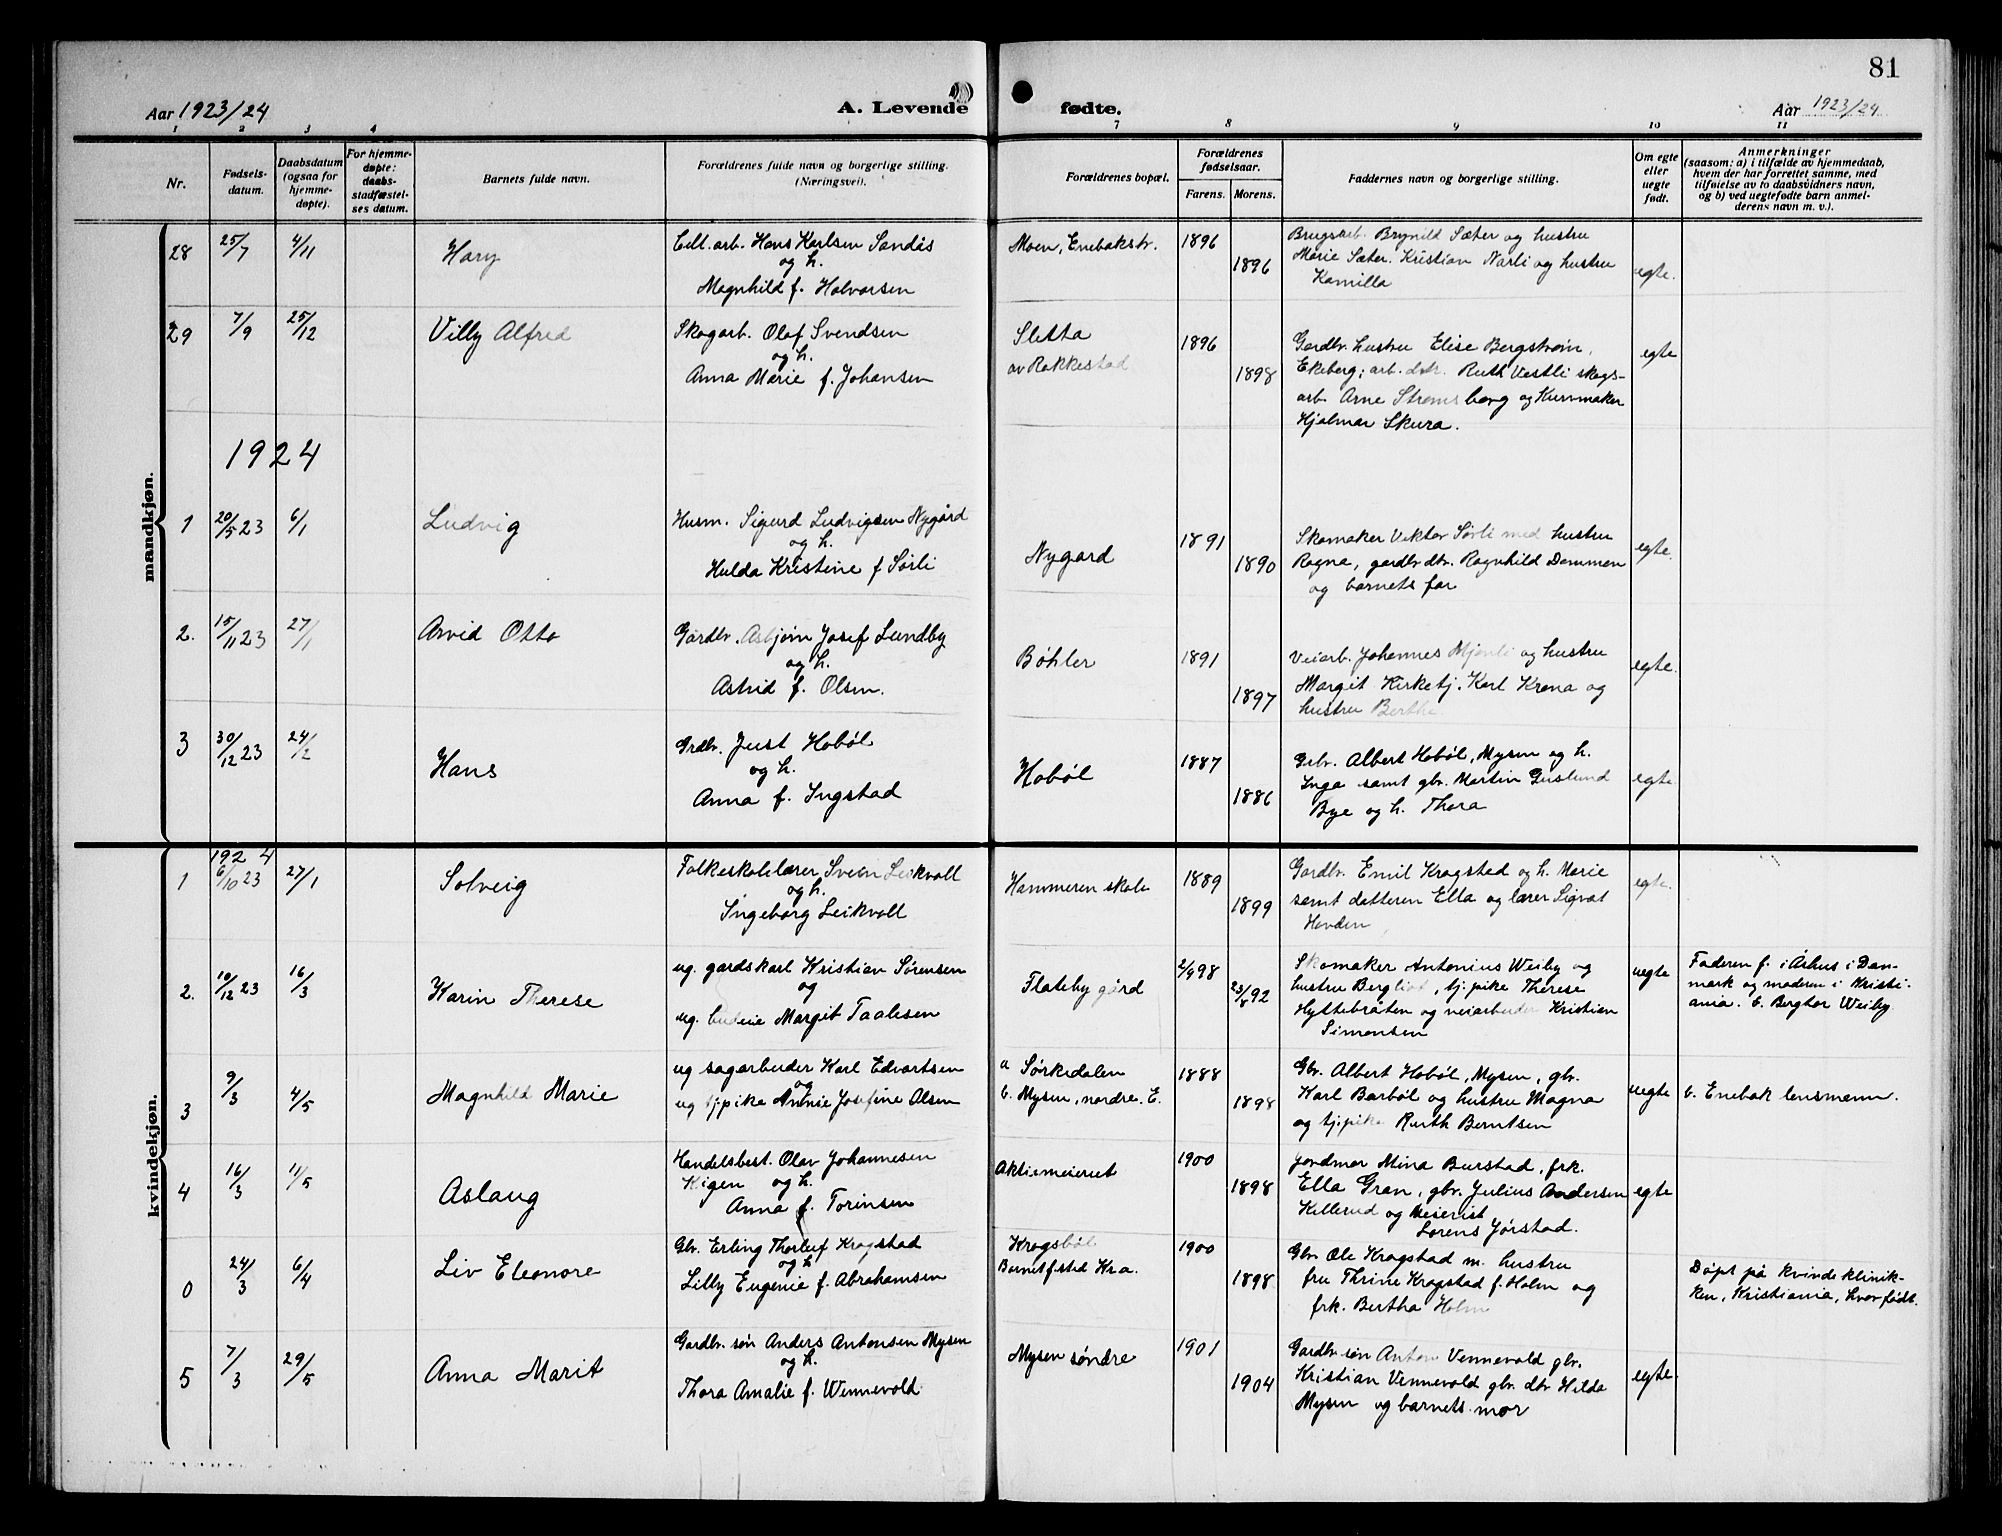 81
Aar 1923/24
A. Levende
fødte.
Aar 1923/24
1 2 3 4 7 8 9 10 11
Nr.
Fødsels-
datum.
Daabsdatum
(ogsaa for
hjemme-
døpte).
For hjemme-
døpte:
daabs-
stadfæstel-
ses datum.
Barnets fulde navn.
Forældrenes fulde navn og borgerlige stilling.
(Næringsvei).
Forældrenes bopæl.
Forældrenes
fødselsaar.
Farens. Morens.
Faddernes navn og borgerlige stilling.
Om egte
eller
uegte
født.
Anmerkninger
(saasom: a) i tilfælde av hjemmedaab,
hvem der har forrettet samme, med
tilføielse av to daabsvidners navn,
og b) ved uegtefødte barn anmel-
derens navn m. v.).
mandkjøn.
28 25/7 4/11 Hary
Cell. arb. Hans Karlsen Sandås
og h.
Magnhild f. Halvorsen
Moen, Enebakstr.
1896
1896
Brugsarb. Brynild Sæter og hustru
Marie Sæter. Kristian Narli og hustru
Kamilla
egte.
29 7/9 25/12 Villy Alfred
Skogarb. Olaf Svendsen
og h.
Anna Marie f. Johansen
Sletta
av Rakkestad
1896
1898
Gardbr. hustru Elise Bergstrøm,
Ekeberg; arb. dtr. Ruth Vestli skogs-
arb. Arne Strømsborg og Kurvmaker
Hjalmar Skura.
egte
1924
1 20/5 23 6/1 Ludvig
Husm. Sigurd Ludvigsen Nygård
og h.
Hulda Kristine f Sørli
Nygard
1891
1890
Skomaker Viktor Sørli med hustru
Ragna, gardbr dtr. Ragnhild Dammen
og barnets far
egte.
2. 15/11 23 27/1 Arvid Otto
Gardbr. Asbjørn Josef Lundby
og h.
Astrid f. Olsen.
Bøhler
1891
1897
Veiarb. Johannes Mjønli og hustru
Margit Kirketj. Karl Krona og
hustru Berthe
egte.
3 30/12 23 24/2 Hans
Grdbr. Just Hobøl
og h.
Anna f. Ingstad
Hobøl
1887
1886
Grbr. Albert Hobøl, Mysen og h.
Inga samt gbr. Martin Guslund
Bye og h. Thora
egte
kvindekjøn.
1924
1 6/10 23 27/1 Solveig
Folkeskolelærer Svein Leikvoll
og h.
Ingeborg Leikvoll
Hammeren skole
1889
1899
Gardbr. Emil Kragstad og h. Marie
samt datteren Ella og lærer Sigvat
Hovden
egte.
2. 10/12 23 16/3 Karin Therese
ug. gardskarl Kristian Sørensen
og
ug. budeie Margit Paulsen
Flateby gård
2/9 98
23/8 92
Skomaker Antonius Weiby og
hustru Bergliot, tj.pike Therese
Hyttebråten og veiarbeider Kristian
Simonsen
uegte
Faderen f. i Århus i Dan-
mark og moderen i Kristi-
ania. b. Bergtor Weiby
3 9/3 4/5 Magnhild Marie
ug sagarbeider Karl Edvartsen
og
ug tjpike Annie Josefine Olsen
a Sørkedalen
b. Mysen, nordre. E.
1888
1898
Gbr. Albert Hobøl, Mysen, gbr.
Karl Barbøl og hustru Magna
og tj.pike Ruth Berntsen
uegte
b. Enebak lensmann.
4 16/3 11/5 Aslaug
Handelsbest. Olav Johannesen
Kigen og h.
Anna f. Torinsen
Aktiemeieriet
1900
1898
Jordmor Mina Burstad, frk.
Ella Gran, gbr. Julius Andersen
Killerud og Meierist
Lorens Jørstad.
egte
0 24/3 6/4 Liv Eleonore
Gbr. Erling Thorleif Kragstad
og h
Lilly Eugenie f. Abrahamsen
Kragsbøl
Barnet f.sted Kra.
1900
1898
Gbr Ole Kragstad m. hustru
fru Thrine Kragstad f. Holm og
frk. Bertha Holm
Døpt på kvindeklinik-
ken, Kristiania, hvor født.
5 7/3 29/5 Anna Marit
Gardbr. søn Anders Antonsen Mysen
og h.
Thora Amalie f. Wennevold
Mysen søndre
1901
1904
Gardbr søn Anton Vennevold gbr.
Kristian Vennevold gbr. dtr Hilda
Mysen og barnets mor
egte